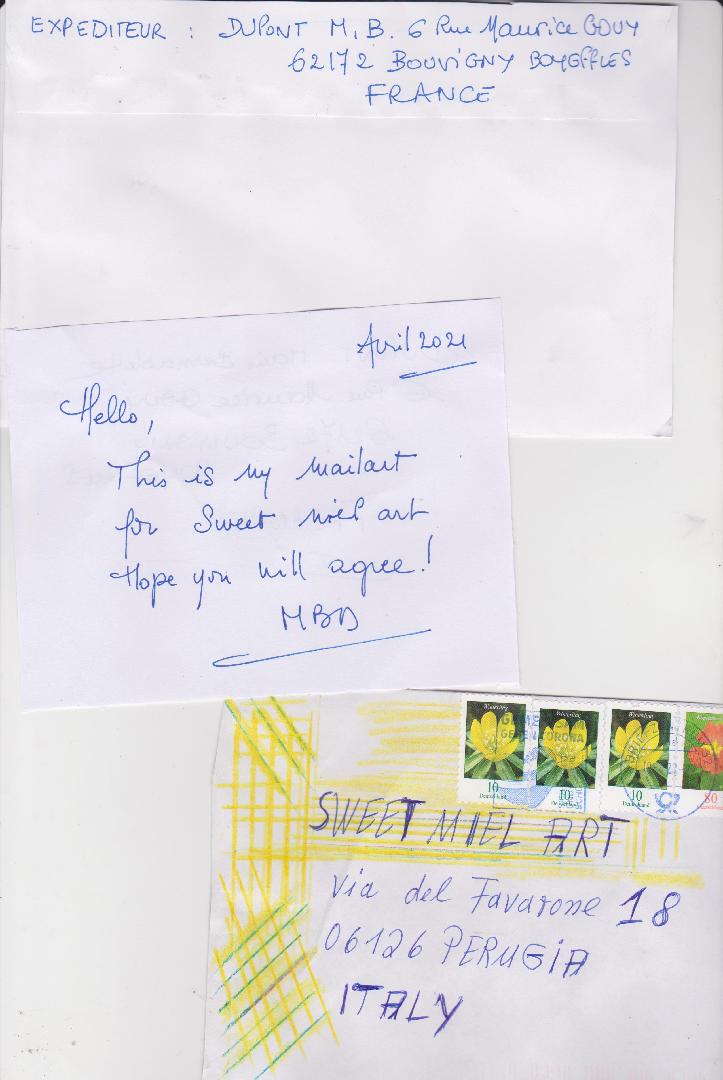 EXPEDITEUR : DUPONT M. B. 6 Rue Maurice GOUY
62172 BOUVIGNY BOYEFFLES
FRANCE
Avril 2021
Hello,
This is my mailart
for Sweet miel art
Hope you will agree!
MBD
Winterling
Winterling
Winterling
GEGEN CORONA
10
10
10
80
Deutschland
Deutschland
Deutschland
SWEET MIEL ART
Via del Favarone 18
06126 PERUGIA
ITALY